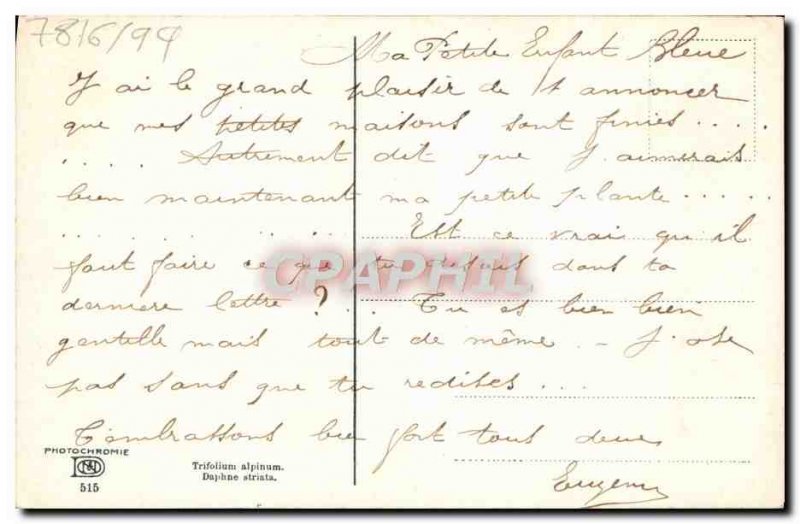 7816/94
Ma Petite Enfant Bleue
J ai le grand plaisir de t annoncer
que mes petites maisons sont finies....
.... Autrement dit que J. aimerais
bien maintenant ma petite plante.....
..... Est ce vrai qu il
faut faire ce que tu disais dans ta
derniere lettre ?... Tu es bien bien
gentille mais tout de même - J. ose
pas sans que tu redises...
T'embrassons bien fort tous deux
Eugene
CPAPHIL
PHOTOCHROMIE
515
Trifolium alpinum.
Daphne striata.